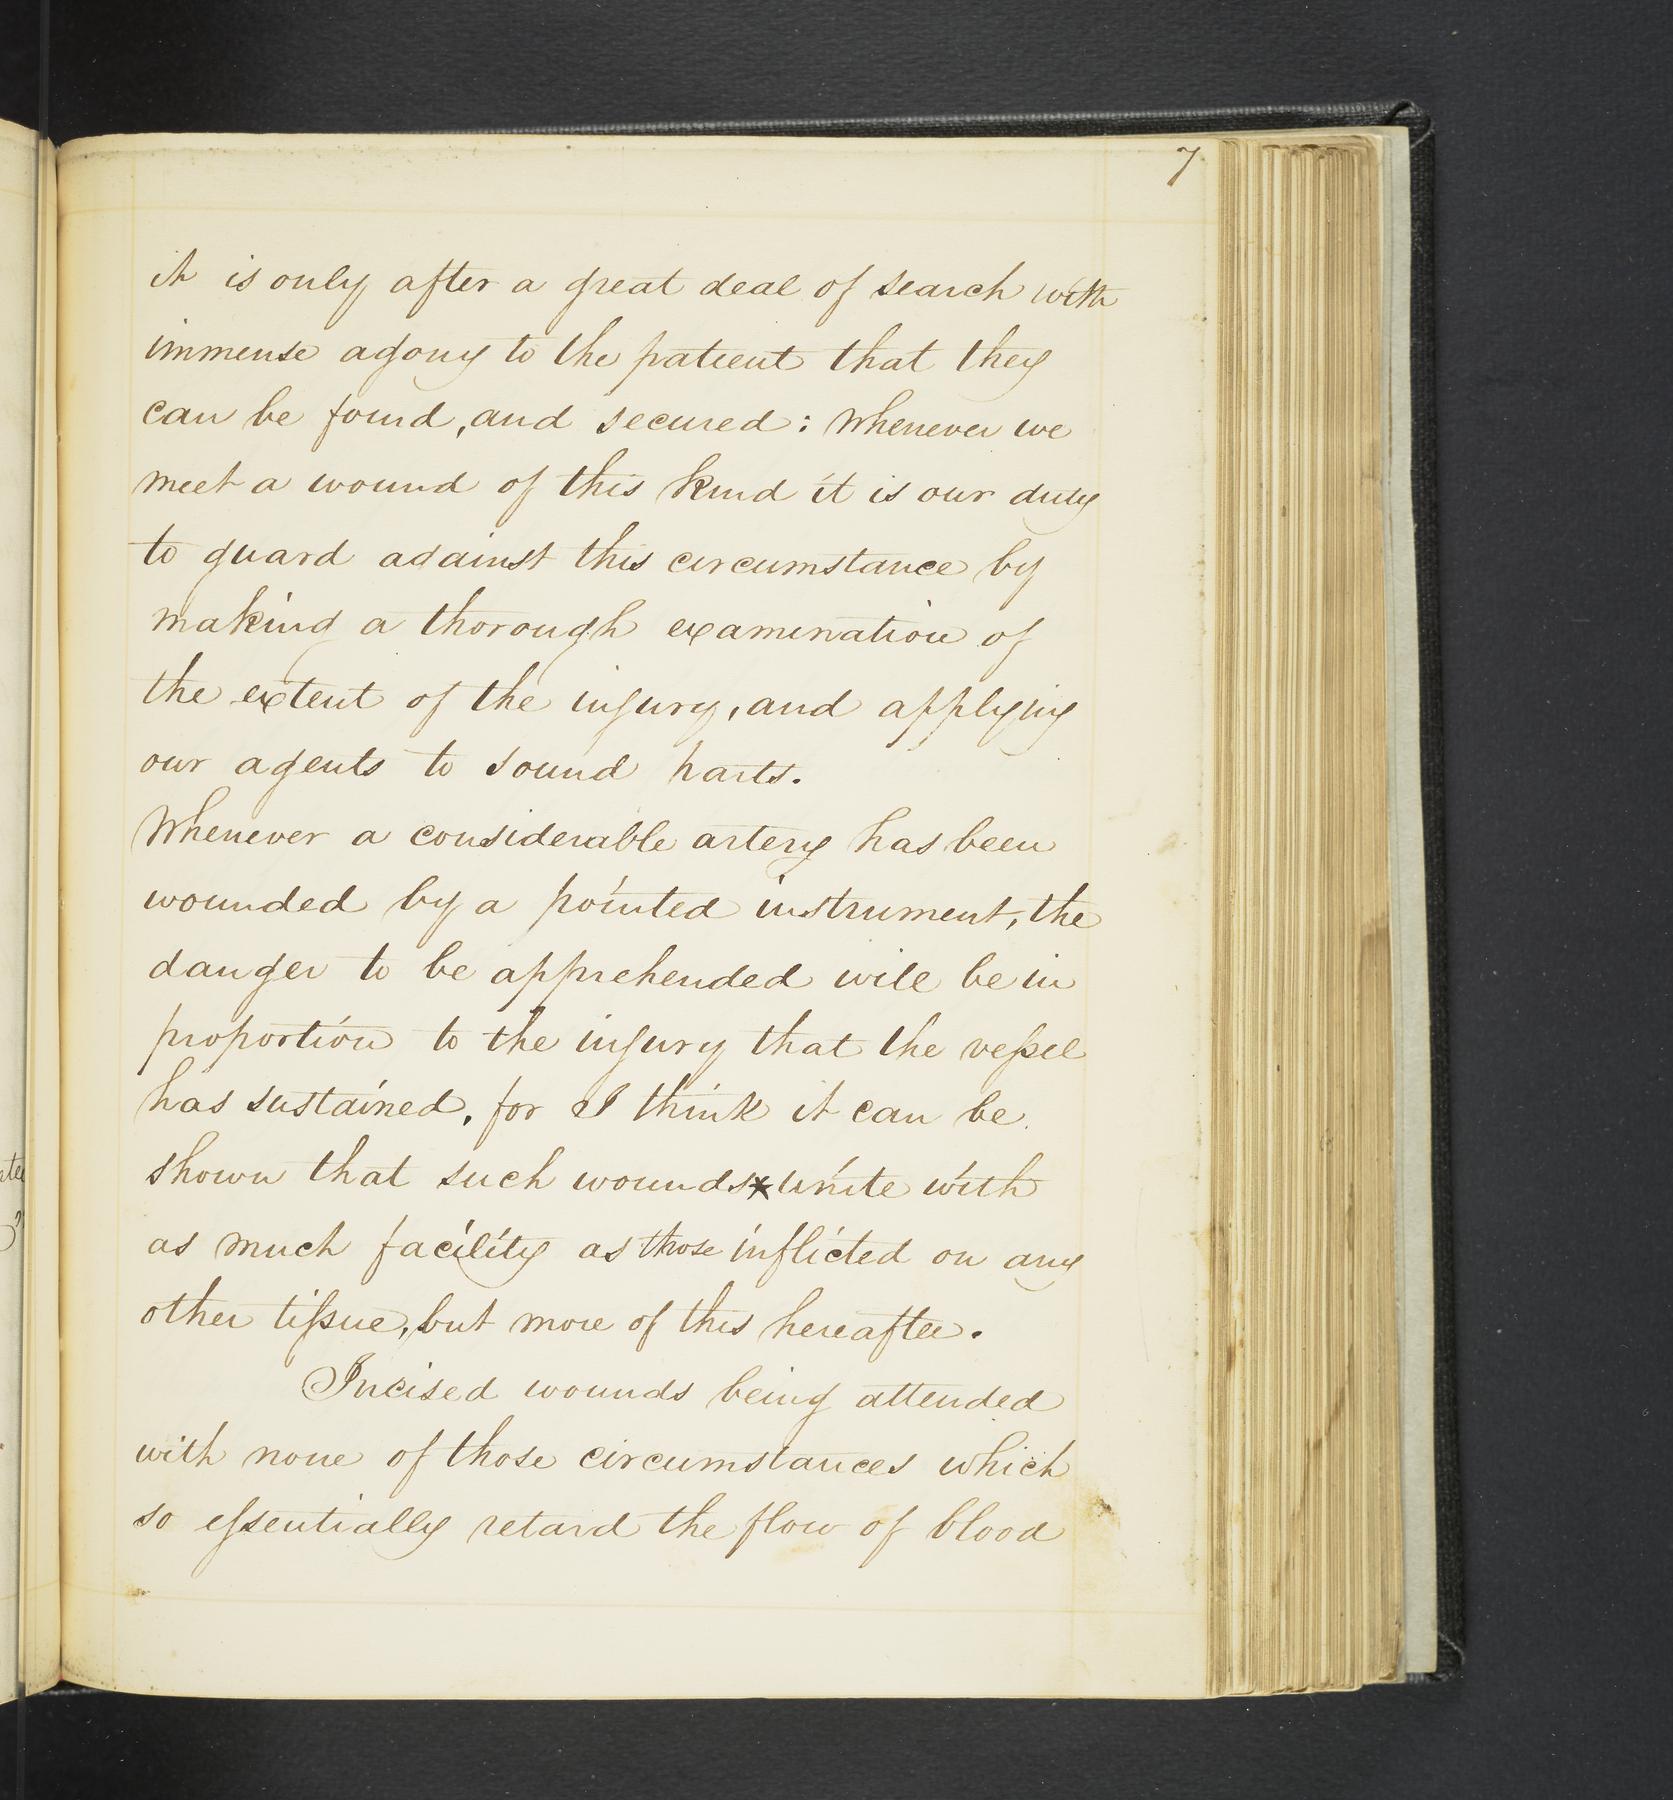 7
it is only after a great deal of search with
immense agony to the patient that they
can be found, and secured: Whenever we
meet a wound of this kind it is our duty
to guard against this circumstance by
making a thorough examination of
the extent of the injury, and applying
our agents to sound parts.
Whenever a considerable artery has been
wounded by a pointed instrument, the
danger to be apprehended will be in
proportion to the injury that the veſsel
has sustained, for I think it can be
shown that such wounds* unite with
as much facility as those inflicted on any
other tiſsue, but more of this hereafter.
Incised wounds being attended
with none of those circumstances which
so eſsentially retard the flow of blood